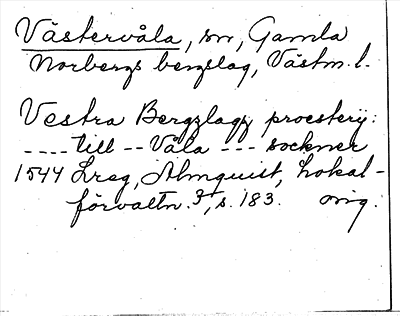 Västervåla, sn, Gamla
Norbergs bergslag, Västm. l.
Vestra Bergzlagz proesterij:
---- till -- Våla --- sockner
1544 Lreg, Almquist, Lokal-
förvaltn. 3, s. 183. orig.